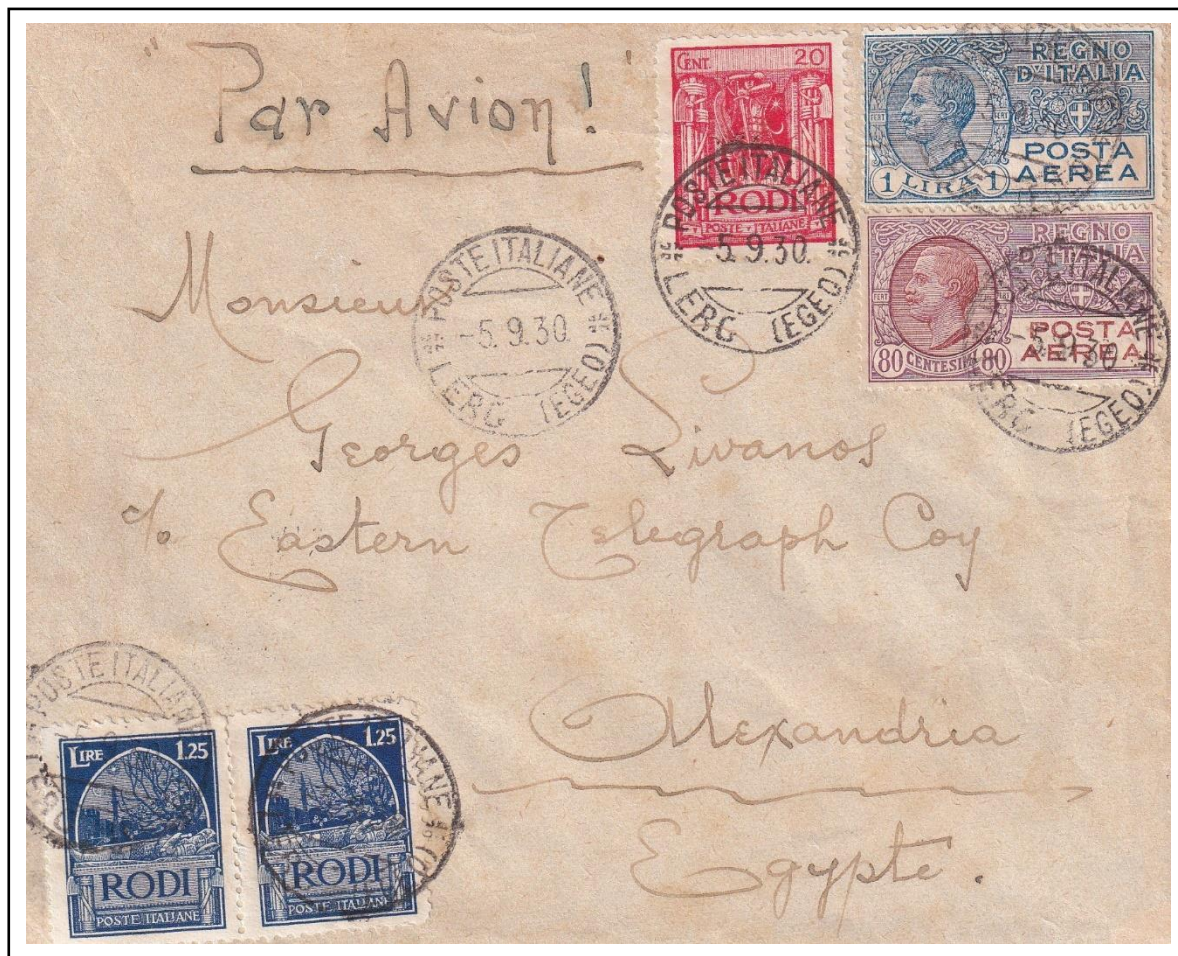 "Par Avion!"
CENT. 20
RODI
POSTE ITALIANE
REGNO
D'ITALIA
POSTA
AEREA
1 LIRA 1
REGNO
D'ITALIA
POSTA
AEREA
80 CENTESIMI 80
POSTE ITALIANE
-5.9.30.
LERO (EGEO)
POSTE ITALIANE
-5.9.30.
LERO (EGEO)
POSTE ITALIANE
-5.9.30
LERO (EGEO)
Monsieur
Georges Livanos
c/o Eastern Telegraph Coy
Alexandria
Egypte.
POSTE ITALIANE
LIRE 1.25
RODI
POSTE ITALIANE
LIRE 1.25
RODI
POSTE ITALIANE